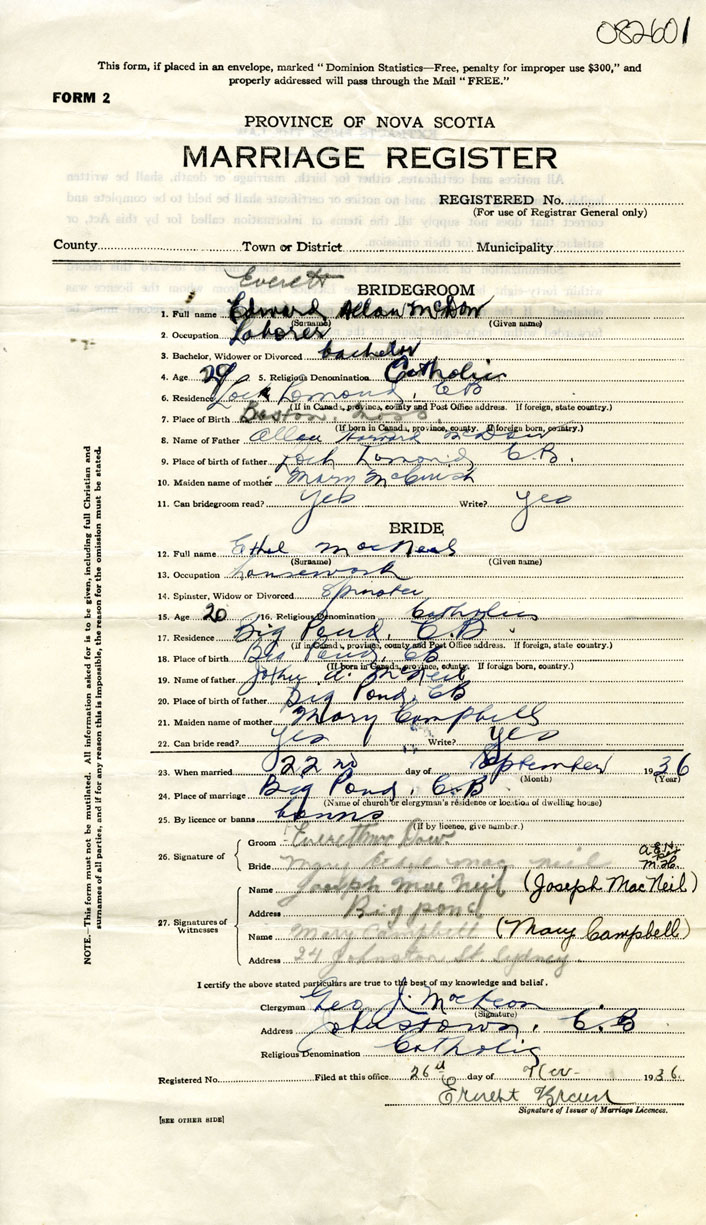 082601
This form, if placed in an envelope, marked "Dominion Statistics—Free, penalty for improper use $300," and
properly addressed will pass through the Mail "FREE."
FORM 2
PROVINCE OF NOVA SCOTIA
MARRIAGE REGISTER
REGISTERED No.
(For use of Registrar General only)
County Town or District Municipality
Everett
BRIDEGROOM
1. Full name Edward Allan McDow
(Surname) (Given name)
2. Occupation Laborer
3. Bachelor, Widower or Divorced bachelor
4. Age 29 5. Religious Denomination Catholic
6. Residence Loch Lomond, C B
(If in Canada, province, county and Post Office address. If foreign, state country.)
7. Place of Birth Boston, Mass.
(If born in Canada, province, county. If foreign born, country.)
8. Name of Father Allan McDow
9. Place of birth of father Loch Lomond, C.B.
10. Maiden name of mother Mary
11. Can bridegroom read? Yes Write? Yes
BRIDE
12. Full name Ethel MacNeal
(Surname) (Given name)
13. Occupation housework
14. Spinster, Widow or Divorced Spinster
15. Age 20 16. Religious Denomination Catholic
17. Residence Big Pond, C.B
(If in Canada, province, county and Post Office address. If foreign, state country.)
18. Place of birth Big Pond, CB
(If born in Canada, province, county. If foreign born, country.)
19. Name of father John A. McNeil
20. Place of birth of father Big Pond, CB
21. Maiden name of mother Mary Campbell
22. Can bride read? Yes Write? Yes
23. When married 22nd day of September 1936
(Month) (Year)
24. Place of marriage Big Pond, C.B.
(Name of church or clergyman's residence or location of dwelling house)
25. By licence or banns banns
(If by licence, give number.)
26. Signature of
Groom Everett Mc Dow
Bride Mary Ethel Mac Neil
27. Signatures of Witnesses
Name Joseph Mac Neil (Joseph MacNeil)
Address Big pond
Name Mary Campbell (Mary Campbell)
Address 24 Johnston St. Sydney
I certify the above stated particulars are true to the best of my knowledge and belief.
Clergyman Geo J. McLean
(Signature)
Address Johnstown, C.B
Religious Denomination Catholic
Registered No. Filed at this office 26th day of Nov- 1936.
Everett Brown
Signature of Issuer of Marriage Licences.
[SEE OTHER SIDE]
NOTE.—This form must not be mutilated. All information asked for is to be given, including full Christian and
surnames of all parties, and if for any reason this is impossible, the reason for the omission must be stated.